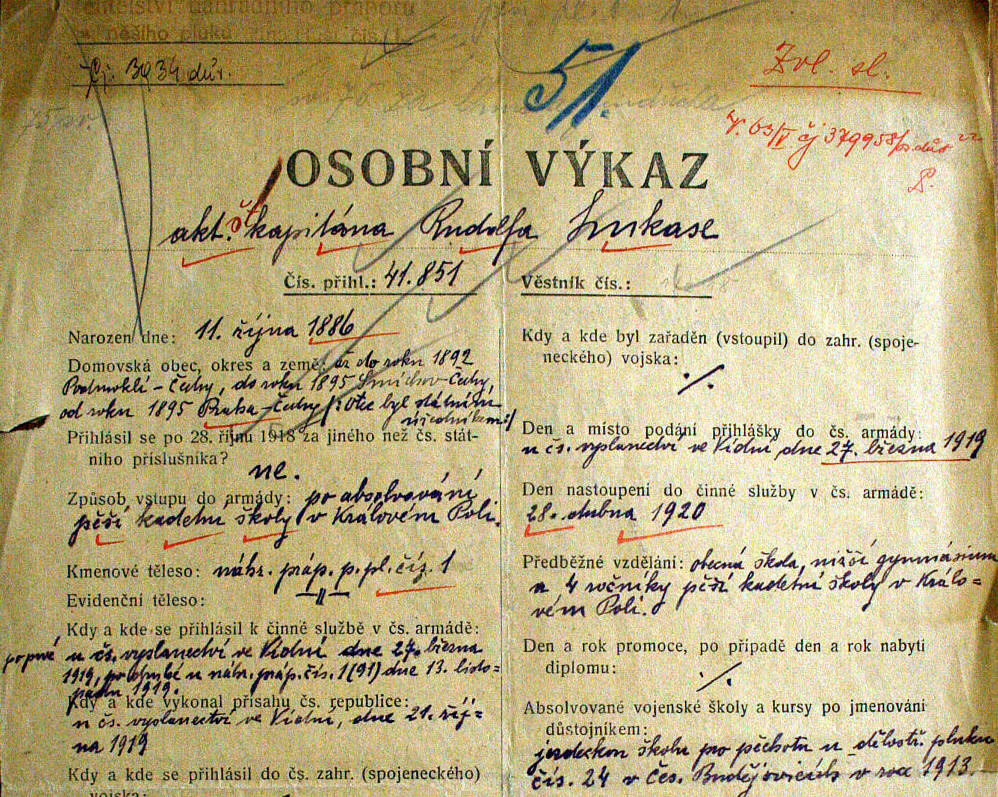 velitelství náhradního praporu
pěšího pluku čís. 1
Čj. 3934 dův.
51.
Zvl. sl.
OSOBNÍ VÝKAZ
akt. škapitána Rudolfa Lukase
Čís. přihl.: 41.851
Věstník čís.:
Narozen dne: 11. října 1886
Domovská obec, okres a země: až do roku 1892
Podmoklí - Čechy, do roku 1895 Smíchov - Čechy,
od roku 1895 Praha - Čechy /: Otec byl státním
úředníkem :/
Přihlásil se po 28. říjnu 1918 za jiného než čs. stát-
ního příslušníka?
ne.
Způsob vstupu do armády: po absolvování
pěší kadetní školy v Králověm Poli.
Kmenové těleso: náhr. práp. p. pl. čís. 1
Evidenční těleso: —"—
Kdy a kde se přihlásil k činné službě v čs. armádě:
poprvé u čs. vyslanectví ve Vídni dne 27. března
1919, po druhé u náhr. práp. čís. 1 (91) dne 13. listo-
padu 1919.
Kdy a kde vykonal přísahu čs. republice:
u čs. vyslanectví ve Vídni, dne 21. říj-
na 1919
Kdy a kde se přihlásil do čs. zahr. (spojeneckého)
vojska:
Kdy a kde byl zařaděn (vstoupil) do zahr. (spoje-
neckého) vojska:
./.
Den a místo podání přihlášky do čs. armády:
u čs. vyslanectví ve Vídni dne 27. března 1919
Den nastoupení do činné služby v čs. armádě:
28. dubna 1920
Předběžné vzdělání: obecná škola, nižší gymnásium
a 4 ročníky pěší kadetní školy v Králo-
vém Poli.
Den a rok promoce, po případě den a rok nabytí
diplomu:
./.
Absolvované vojenské školy a kursy po jmenování
důstojníkem:
jezdeckou školu pro pěchotu u dělostř. pluku
čís. 24 v Čes. Budějovicích v roce 1913.